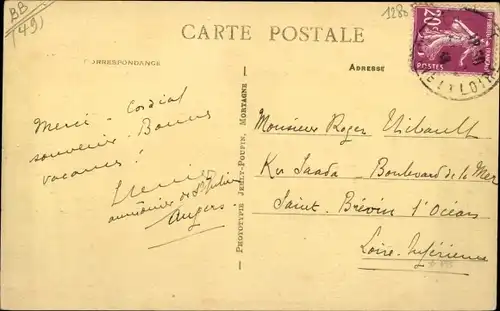 BB
(49)
1280
CARTE POSTALE
20c
POSTES
ET LOIRE
CORRESPONDANCE
ADRESSE
Merci - Cordial
souvenir. Bonnes
vacances !
aumônier de St Julien
Angers
PHOTOTYPIE JEHLY-POUPIN, MORTAGNE
Monsieur Roger Thibault
Ker Saada Boulevard de la Mer
Saint. Brévin l'Océan
Loire-Inférieure